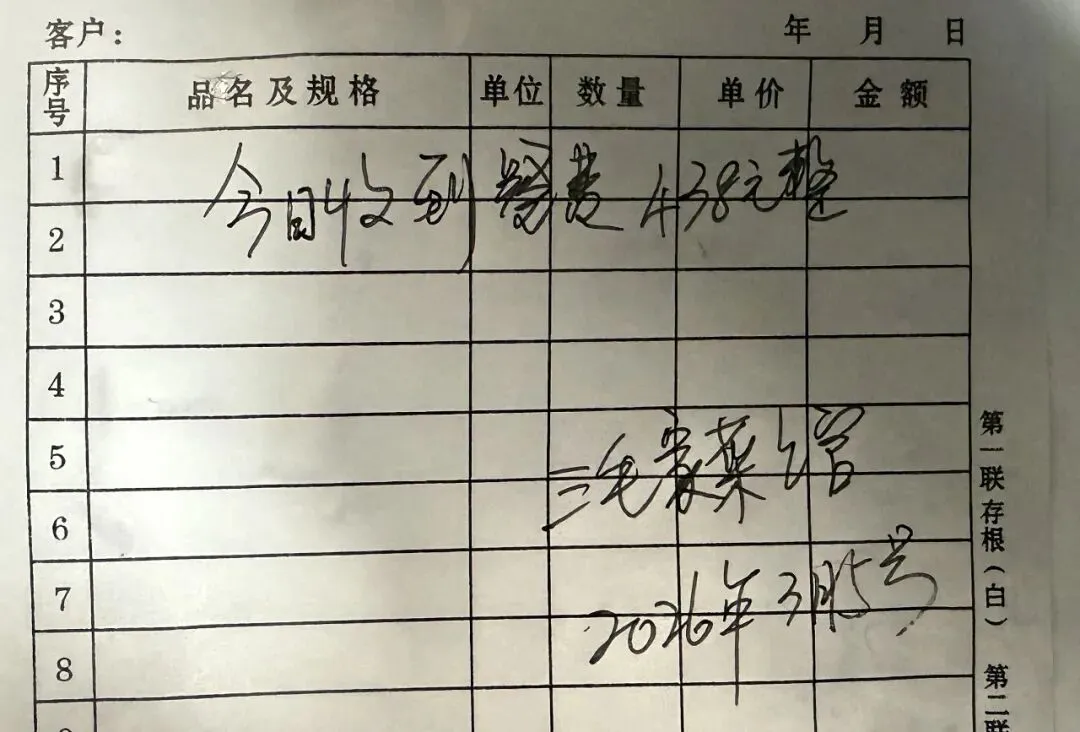 客户： 年 月 日
序号 品名及规格 单位 数量 单价 金额
1
今日收到餐费438元整
2
3
4
5
三毛家菜馆
6
7
2026年3月5号
8
第一联存根（白） 第二联